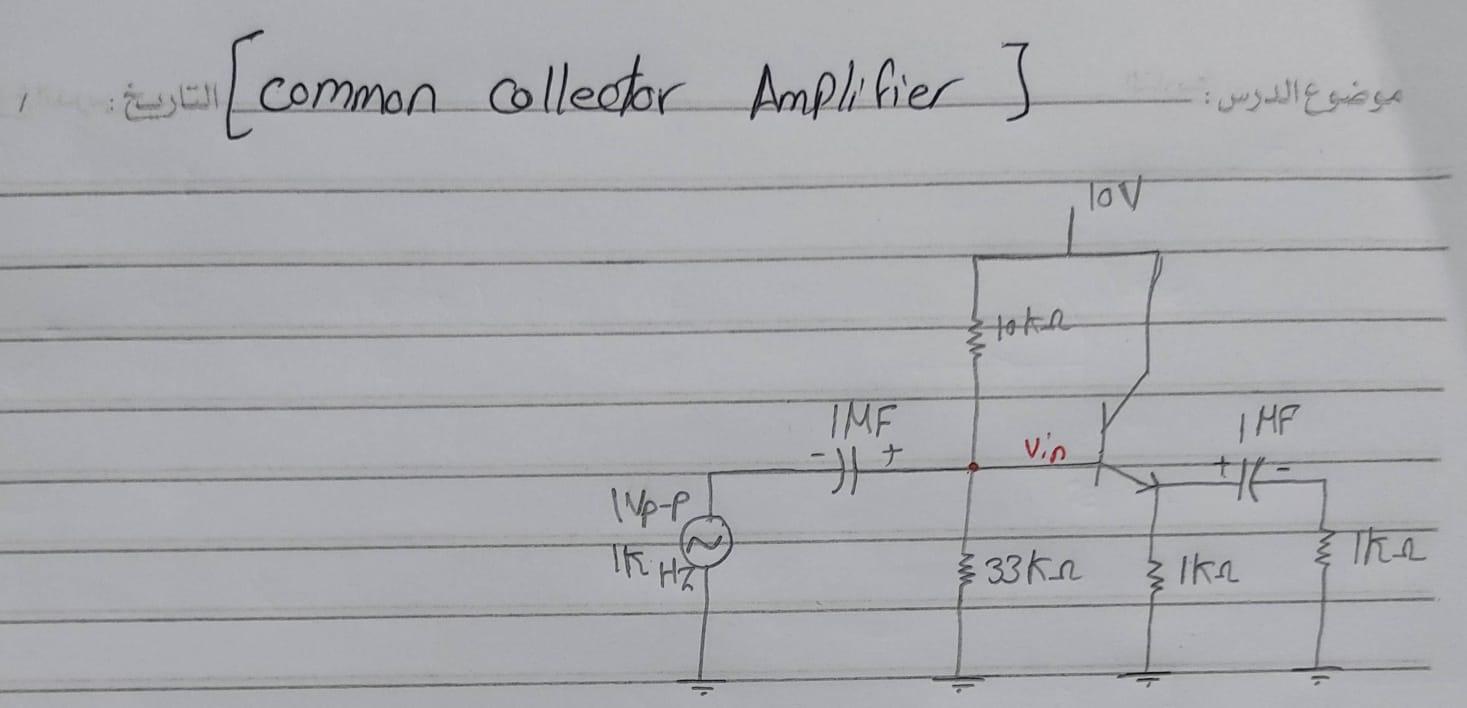 موضوع الدرس: [Common Collector Amplifier] التاريخ: /
10V
10kΩ
1MF 1MF
- + Vin + -
1Vp-p
1K HZ 33KΩ 1KΩ 1KΩ